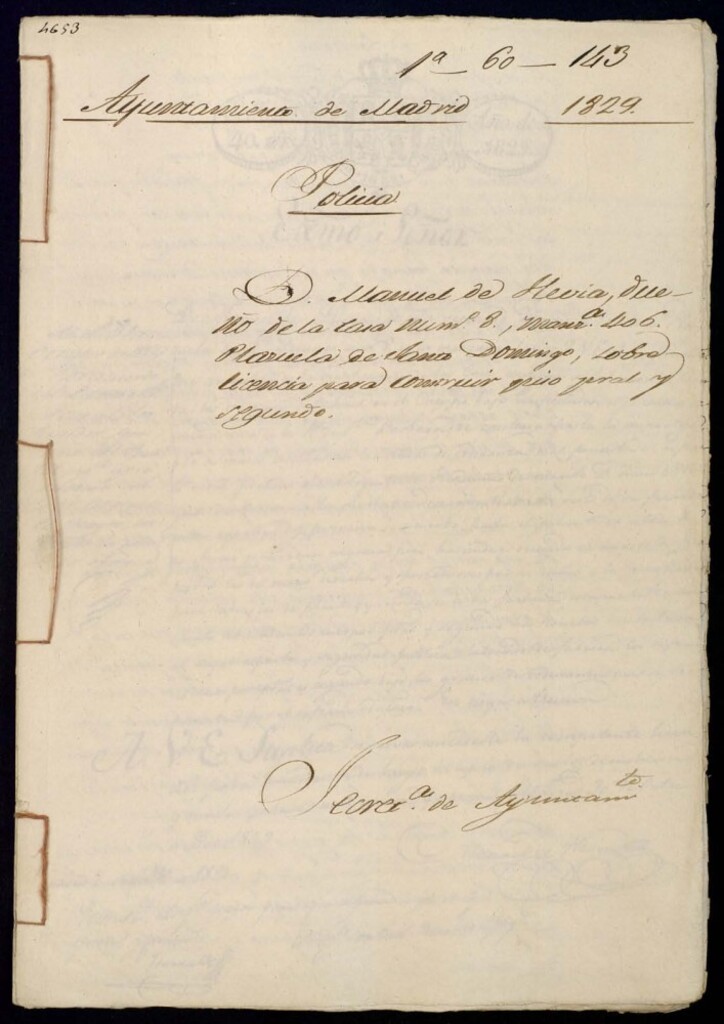 4653
1ª - 60 - 143
Ayuntamiento de Madrid 1829.
Policia
D. Manuel de Hevia, due-
ño de la Casa Numº 8., manzª 406.
Plazuela de Santo Domingo, sobre
licencia para Construir piso pral y
segundo.
Secretª de Ayuntamto.